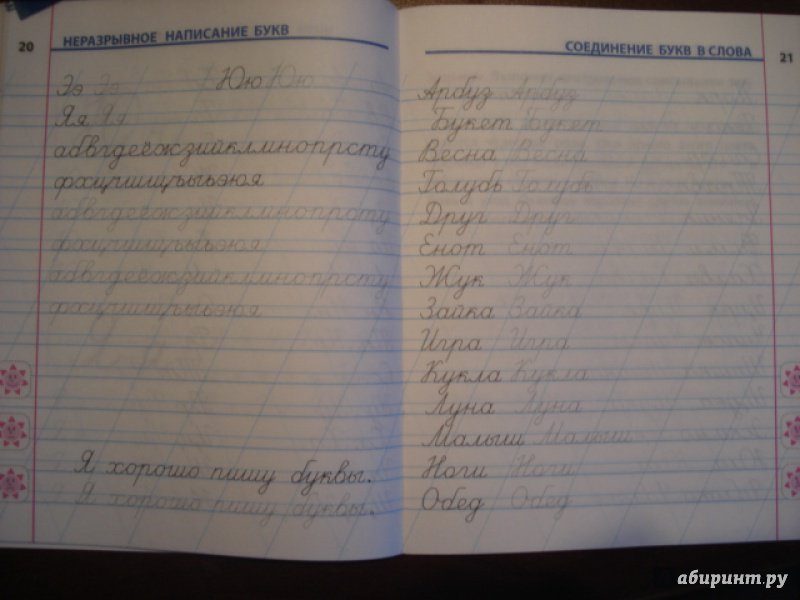 20 НЕРАЗРЫВНОЕ НАПИСАНИЕ БУКВ
Ээ Ээ Юю Юю
Яя Яя
абвгдеёжзийклмнопрсту
фхцчшщъыьэюя
абвгдеёжзийклмнопрсту
фхцчшщъыьэюя
абвгдеёжзийклмнопрсту
фхцчшщъыьэюя
Я хорошо пишу буквы.
Я хорошо пишу буквы.
СОЕДИНЕНИЕ БУКВ В СЛОВА 21
Арбуз Арбуз
Букет Букет
Весна Весна
Голубь Голубь
Друг Друг
Енот Енот
Жук Жук
Зайка Зайка
Игра Игра
Кукла Кукла
Луна Луна
Малыш Малыш
Ноги Ноги
Обед Обед
абиринт.ру